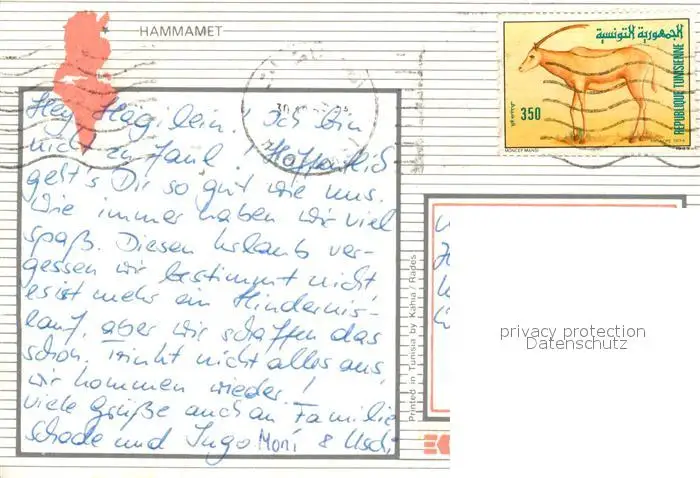 HAMMAMET
الجمهورية التونسية
REPUBLIQUE TUNISIENNE
350
MONCEF MANSI
Hey, Hägilein! Ich bin
nicht zu faul! Hoffentlich
geht's Dir so gut wie uns.
Wie immer haben wir viel
spaß. Diesen Urlaub ver-
gessen wir bestimmt nicht
es ist mehr ein Hindernis-
lauf, aber wir schaffen das
schon. Trinkt nicht alles aus
wir kommen wieder!
viele Grüße auch an Familie
Schade und Ingo Moni & Uschi
Printed in Tunisia by Kahia / Rades
privacy protection
Datenschutz